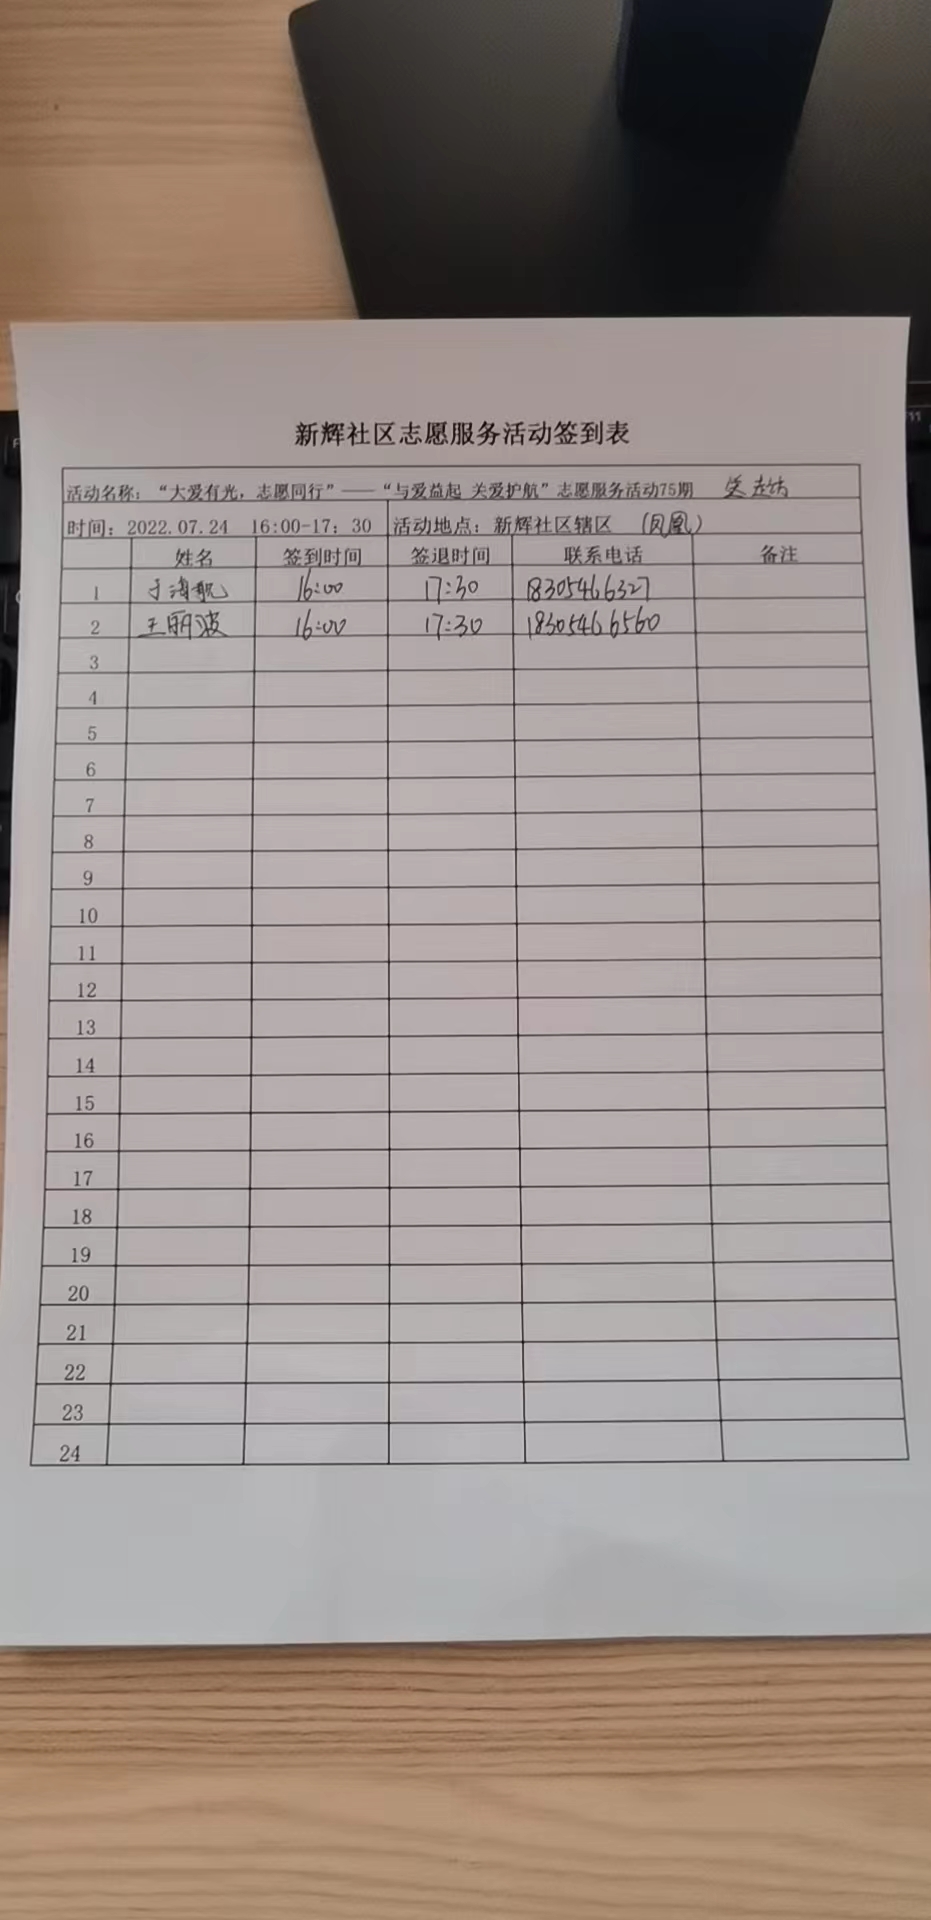 新辉社区志愿服务活动签到表
活动名称：“大爱有光，志愿同行”——“与爱益起 关爱护航”志愿服务活动75期
时间：2022.07.24 16:00-17：30 活动地点：新辉社区辖区 （凤凰）
姓名 签到时间 签退时间 联系电话 备注
1 于海航 16:00 17:30 18305466327
2 王丽波 16:00 17:30 18305466560
3
4
5
6
7
8
9
10
11
12
13
14
15
16
17
18
19
20
21
22
23
24